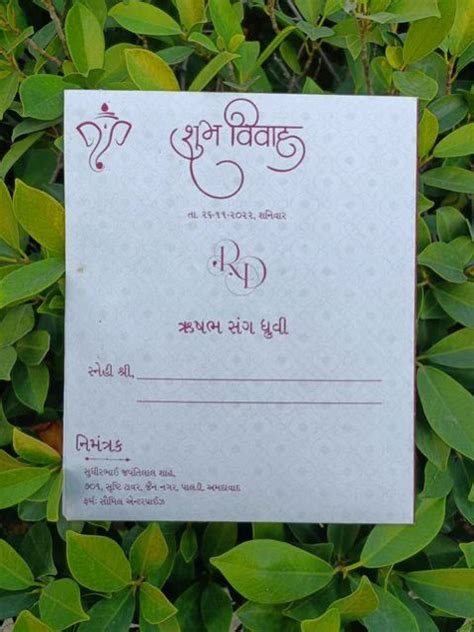 શુભ વિવાહ
તા. ૨૬-૧૧-૨૦૨૨, શનિવાર
RD
ઋષભ સંગ ધ્રુવી
સ્નેહી શ્રી,
નિમંત્રક
સુધીરભાઈ જયંતિલાલ શાહ,
૭૦૧, સૃષ્ટિ ટાવર, જૈન નગર, પાલડી, અમદાવાદ
ફર્મ: સોમિલ એન્ટરપ્રાઈઝ